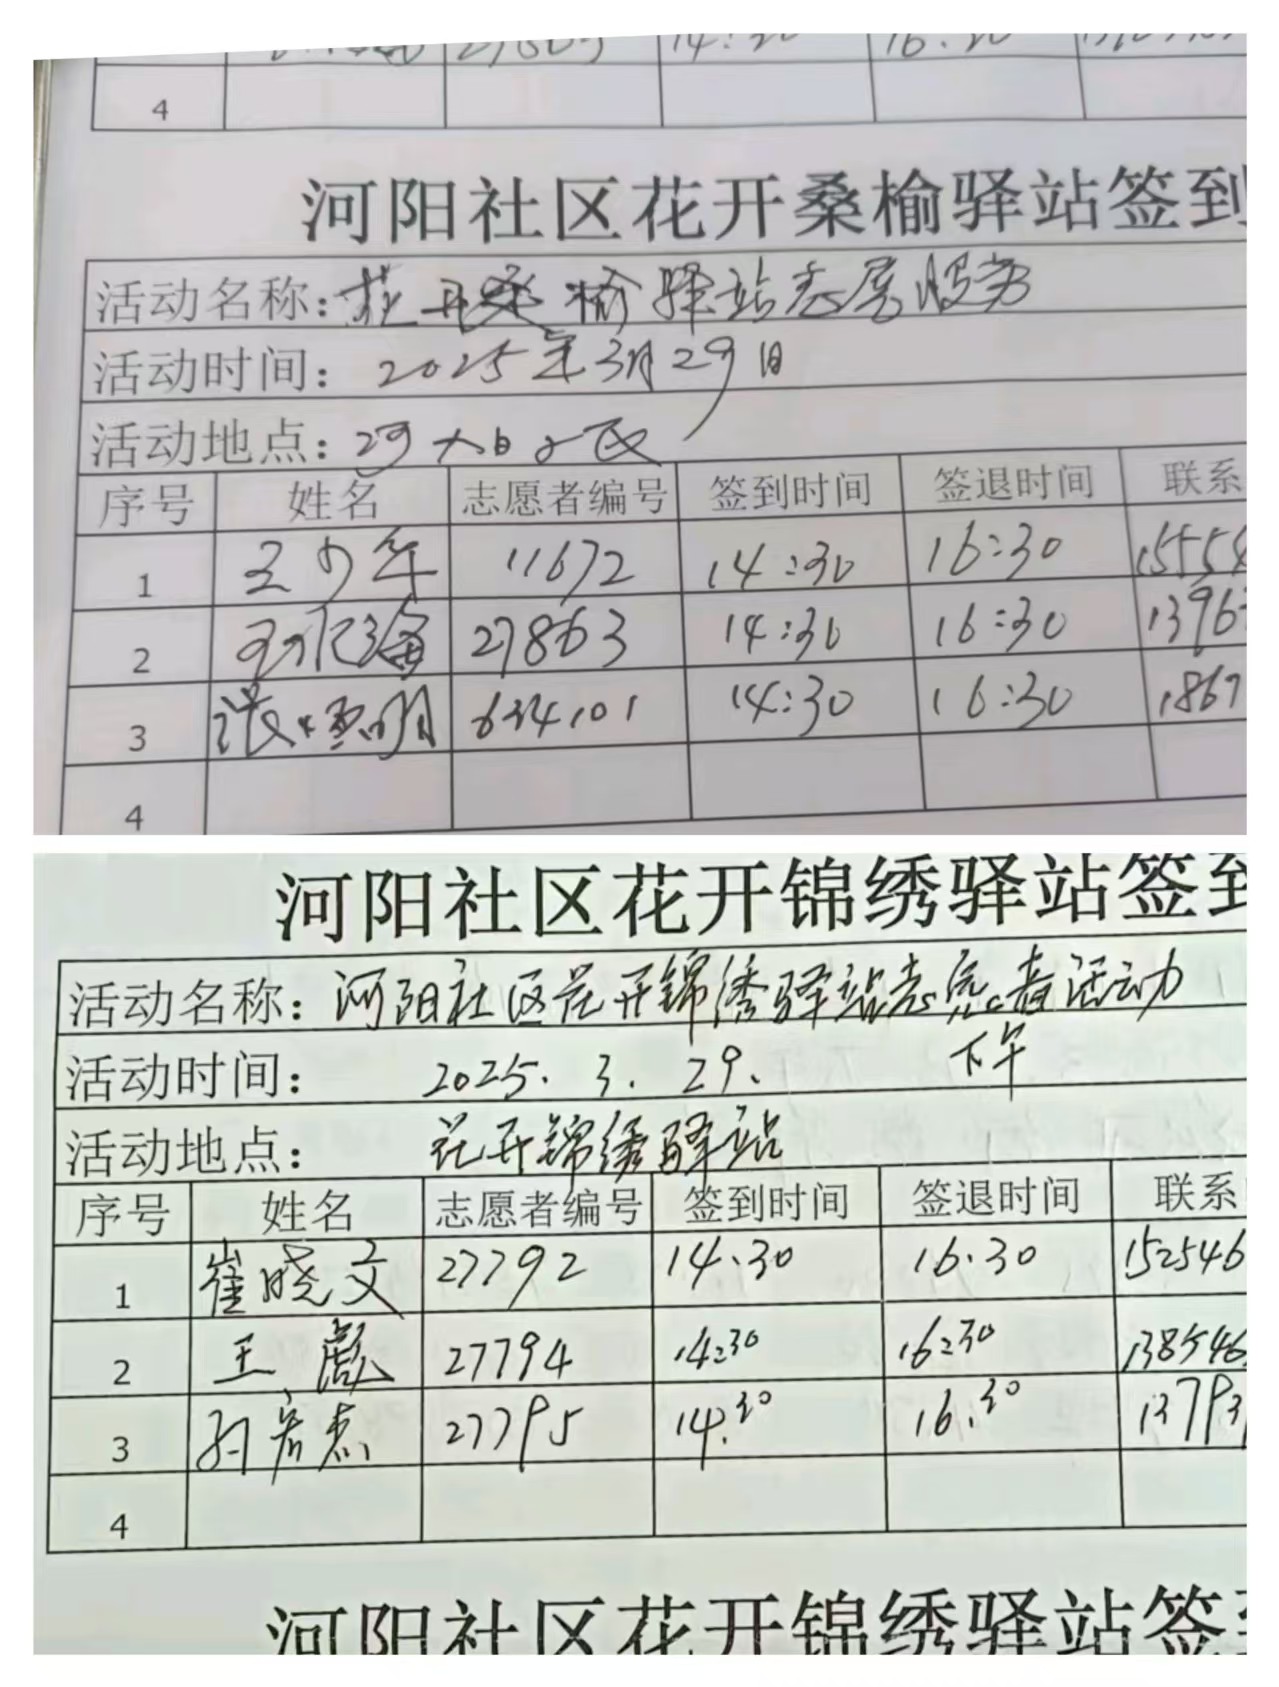 27863 14:30 16:30
4
河阳社区花开桑榆驿站签到
活动名称:花开桑榆驿站志愿服务
活动时间: 2025年3月29日
活动地点:
序号 姓名 志愿者编号 签到时间 签退时间 联系
1 王少华 11672 14:30 16:30 15554
2 27863 14:30 16:30 1396
3 634101 14:30 16:30 1867
4
河阳社区花开锦绣驿站签到
活动名称:河阳社区花开锦绣驿站志愿者活动
活动时间: 2025. 3. 29. 下午
活动地点: 花开锦绣驿站
序号 姓名 志愿者编号 签到时间 签退时间 联系
1 崔晓文 27792 14:30 16:30 152546
2 王 27794 14:30 16:30 138546
3 27795 14:30 16:30 13793
4
河阳社区花开锦绣驿站签到